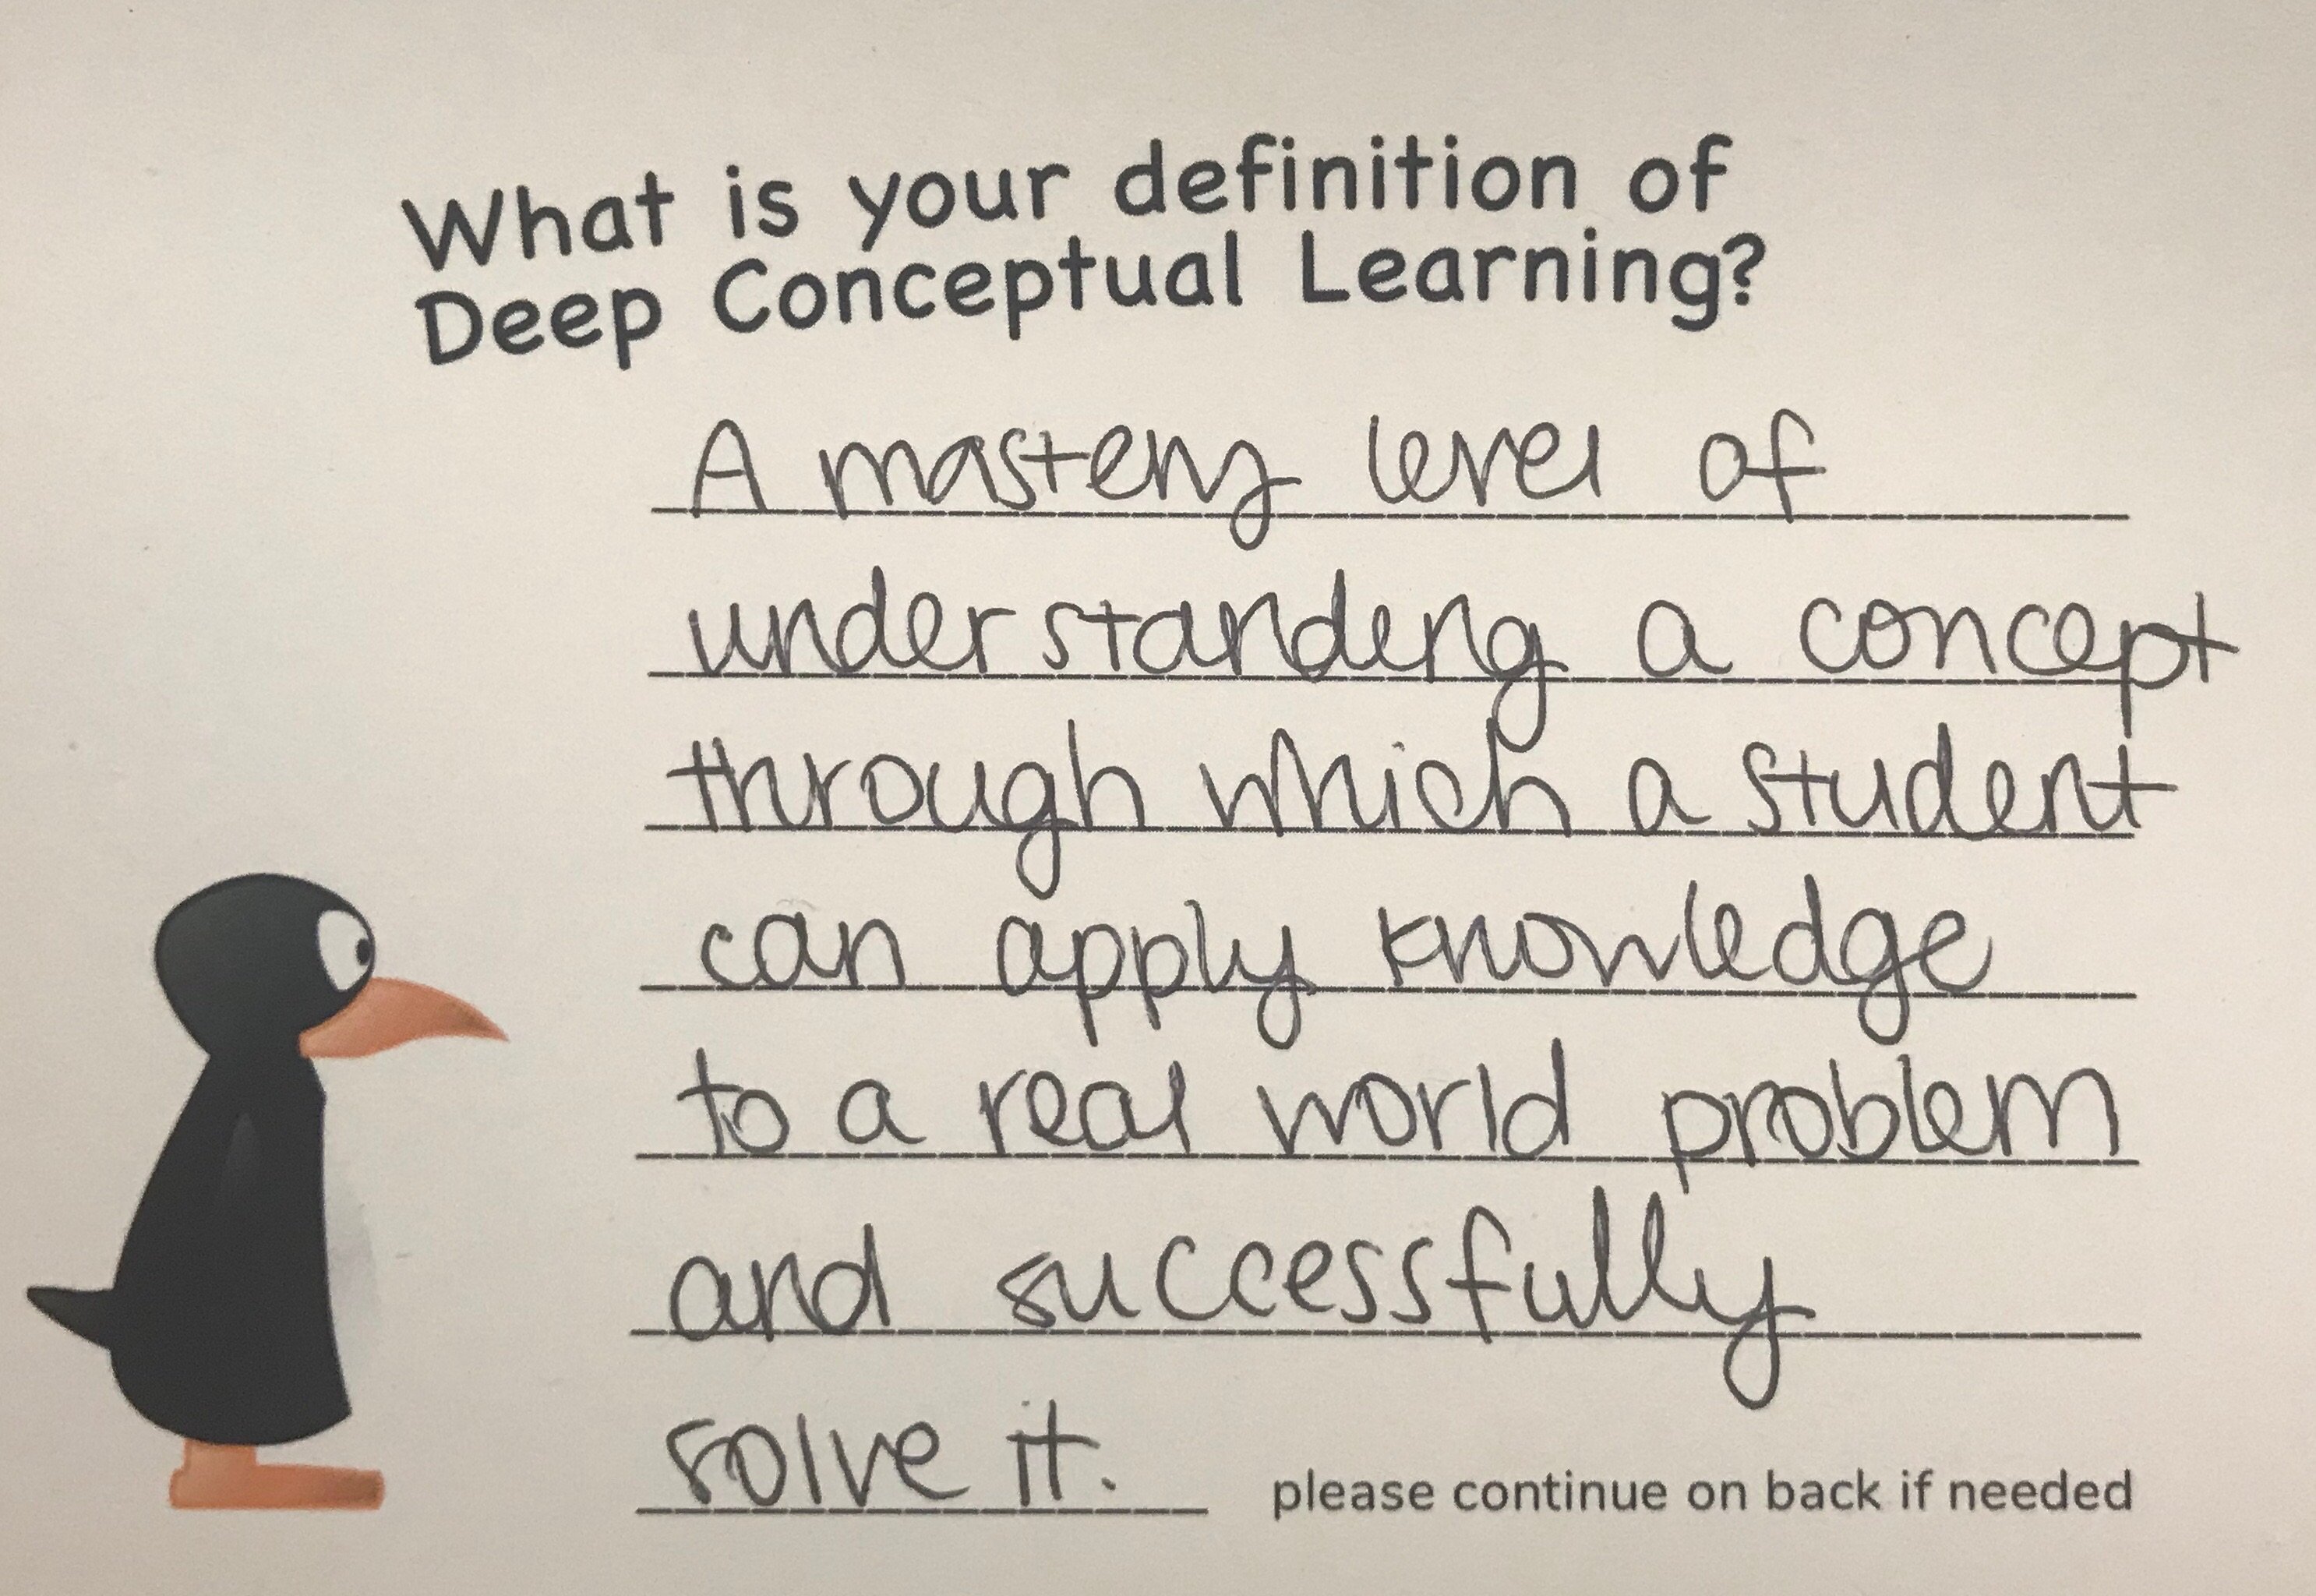 What is your definition of
Deep Conceptual Learning?
A mastery level of
understanding a concept
through which a student
can apply knowledge
to a real world problem
and successfully
solve it.
please continue on back if needed